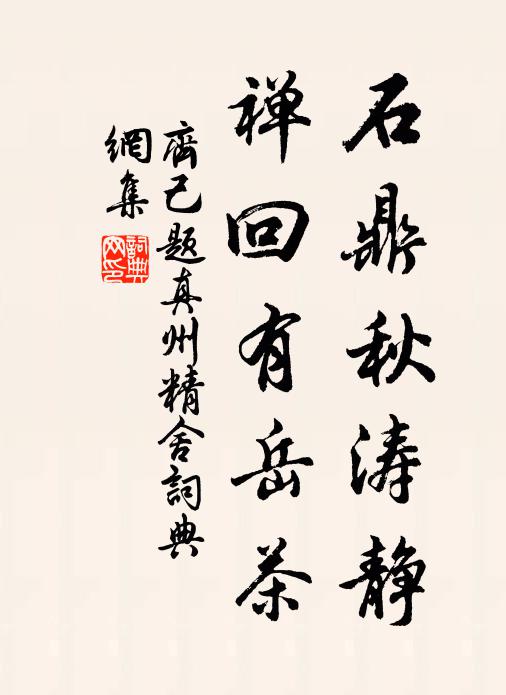 石鼎秋涛静
禅回有岳茶
齊己题真州精舍詞典
網集
詞典网印